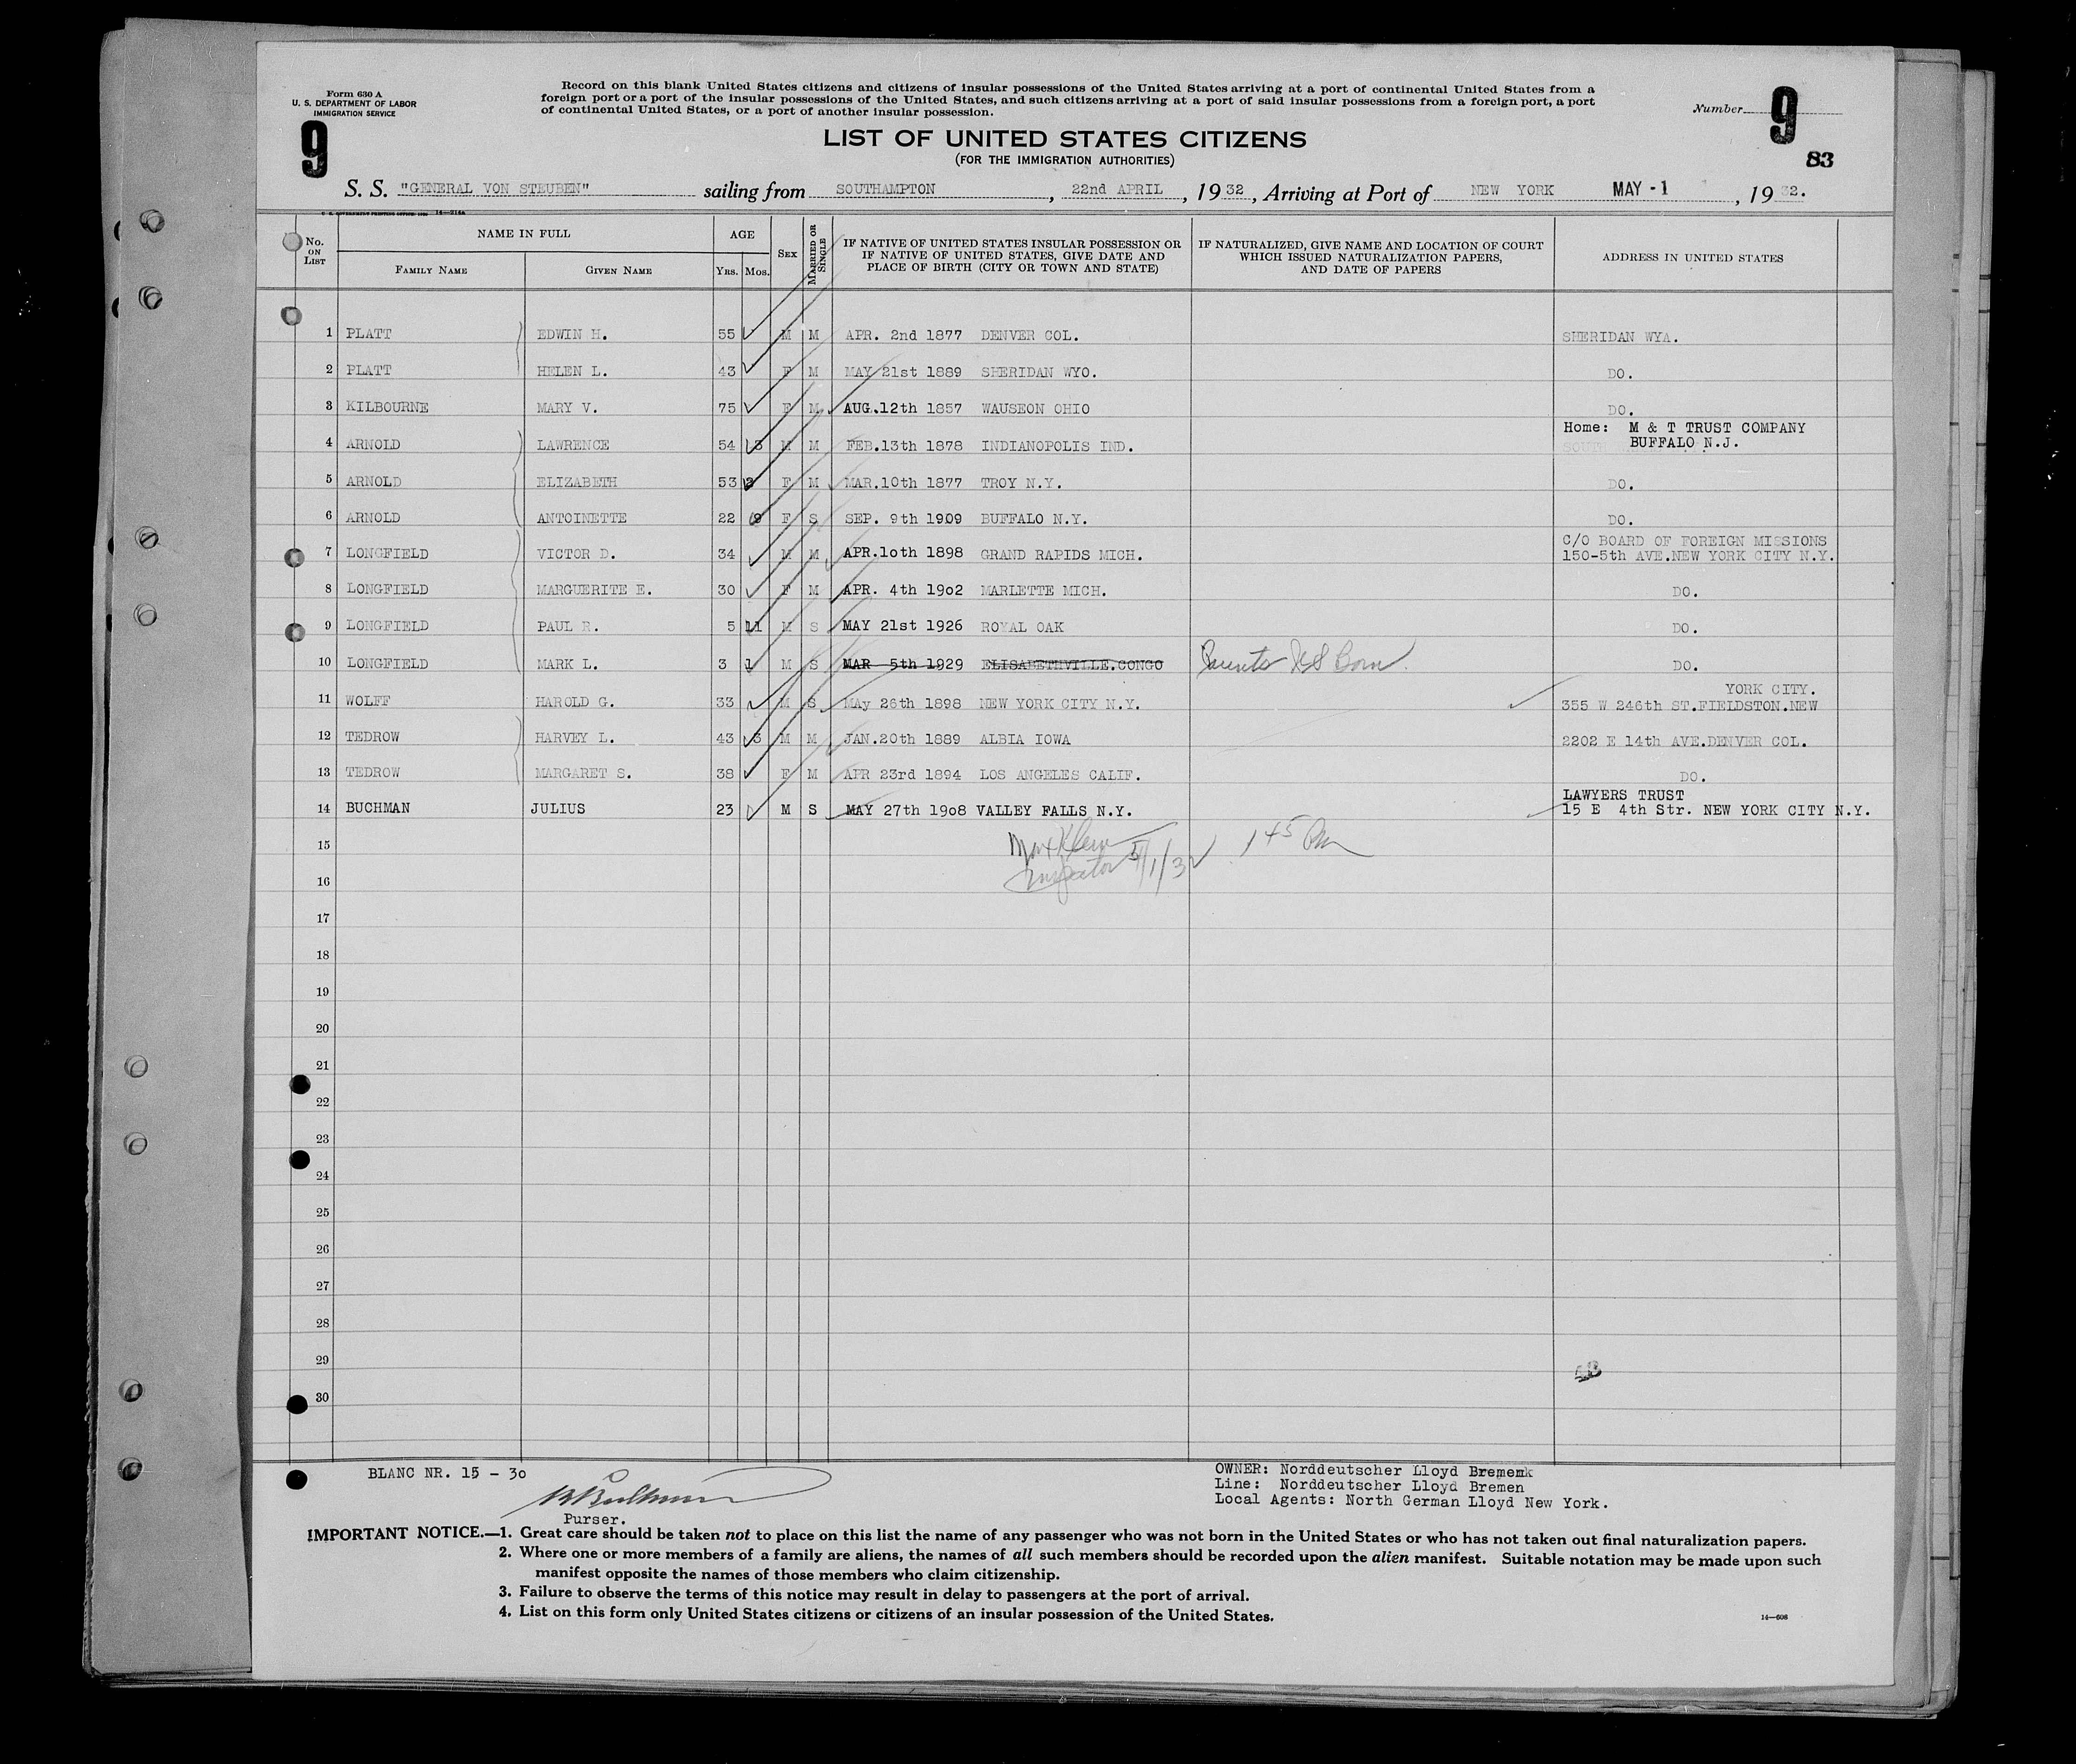 Form 630 A
U. S. DEPARTMENT OF LABOR
IMMIGRATION SERVICE
9
Record on this blank United States citizens and citizens of insular possessions of the United States arriving at a port of continental United States from a
foreign port or a port of the insular possessions of the United States, and such citizens arriving at a port of said insular possessions from a foreign port, a port
of continental United States, or a port of another insular possession.
Number 9
83
LIST OF UNITED STATES CITIZENS
(FOR THE IMMIGRATION AUTHORITIES)
S. S. "GENERAL VON STEUBEN" sailing from SOUTHAMPTON, 22nd APRIL, 1932, Arriving at Port of NEW YORK MAY -1, 1932.
No. ON LIST
NAME IN FULL
FAMILY NAME
GIVEN NAME
AGE
YRS. MOS.
SEX
MARRIED OR SINGLE
IF NATIVE OF UNITED STATES INSULAR POSSESSION OR
IF NATIVE OF UNITED STATES, GIVE DATE AND
PLACE OF BIRTH (CITY OR TOWN AND STATE)
IF NATURALIZED, GIVE NAME AND LOCATION OF COURT
WHICH ISSUED NATURALIZATION PAPERS,
AND DATE OF PAPERS
ADDRESS IN UNITED STATES
1 PLATT EDWIN H. 55 M M APR. 2nd 1877 DENVER COL. SHERIDAN WYA.
2 PLATT HELEN L. 43 F M MAY 21st 1889 SHERIDAN WYO. DO.
3 KILBOURNE MARY V. 75 F M AUG.12th 1857 WAUSEON OHIO DO.
Home: M & T TRUST COMPANY
4 ARNOLD LAWRENCE 54 3 M M FEB.13th 1878 INDIANOPOLIS IND. BUFFALO N.J.
5 ARNOLD ELIZABETH 53 F M MAR.10th 1877 TROY N.Y. DO.
6 ARNOLD ANTOINETTE 22 F S SEP. 9th 1909 BUFFALO N.Y. DO.
C/O BOARD OF FOREIGN MISSIONS
7 LONGFIELD VICTOR D. 34 M M APR.1oth 1898 GRAND RAPIDS MICH. 150-5th AVE.NEW YORK CITY N.Y.
8 LONGFIELD MARGUERITE E. 30 F M APR. 4th 19o2 MARLETTE MICH. DO.
9 LONGFIELD PAUL R. 5 11 M S MAY 21st 1926 ROYAL OAK DO.
10 LONGFIELD MARK L. 3 1 M S MAR 5th 1929 ELISABETHVILLE.CONGO Parents US Born. DO.
YORK CITY.
11 WOLFF HAROLD G. 33 M S MAy 26th 1898 NEW YORK CITY N.Y. 355 W 246th ST.FIELDSTON.NEW
12 TEDROW HARVEY L. 43 3 M M JAN.20th 1889 ALBIA IOWA 2202 E 14th AVE.DENVER COL.
13 TEDROW MARGARET S. 38 F M APR 23rd 1894 LOS ANGELES CALIF. DO.
LAWYERS TRUST
14 BUCHMAN JULIUS 23 M S MAY 27th 19o8 VALLEY FALLS N.Y. 15 E 4th Str. NEW YORK CITY N.Y.
15 Max Klein 145 Pm
Inspector 5/1/32
16
17
18
19
20
21
22
23
24
25
26
27
28
29
30
BLANC NR. 15 - 3o
Purser.
OWNER: Norddeutscher Lloyd Bremen
Line: Norddeutscher Lloyd Bremen
Local Agents: North German Lloyd New York.
IMPORTANT NOTICE.—1. Great care should be taken not to place on this list the name of any passenger who was not born in the United States or who has not taken out final naturalization papers.
2. Where one or more members of a family are aliens, the names of all such members should be recorded upon the alien manifest. Suitable notation may be made upon such
manifest opposite the names of those members who claim citizenship.
3. Failure to observe the terms of this notice may result in delay to passengers at the port of arrival.
4. List on this form only United States citizens or citizens of an insular possession of the United States.
14—608